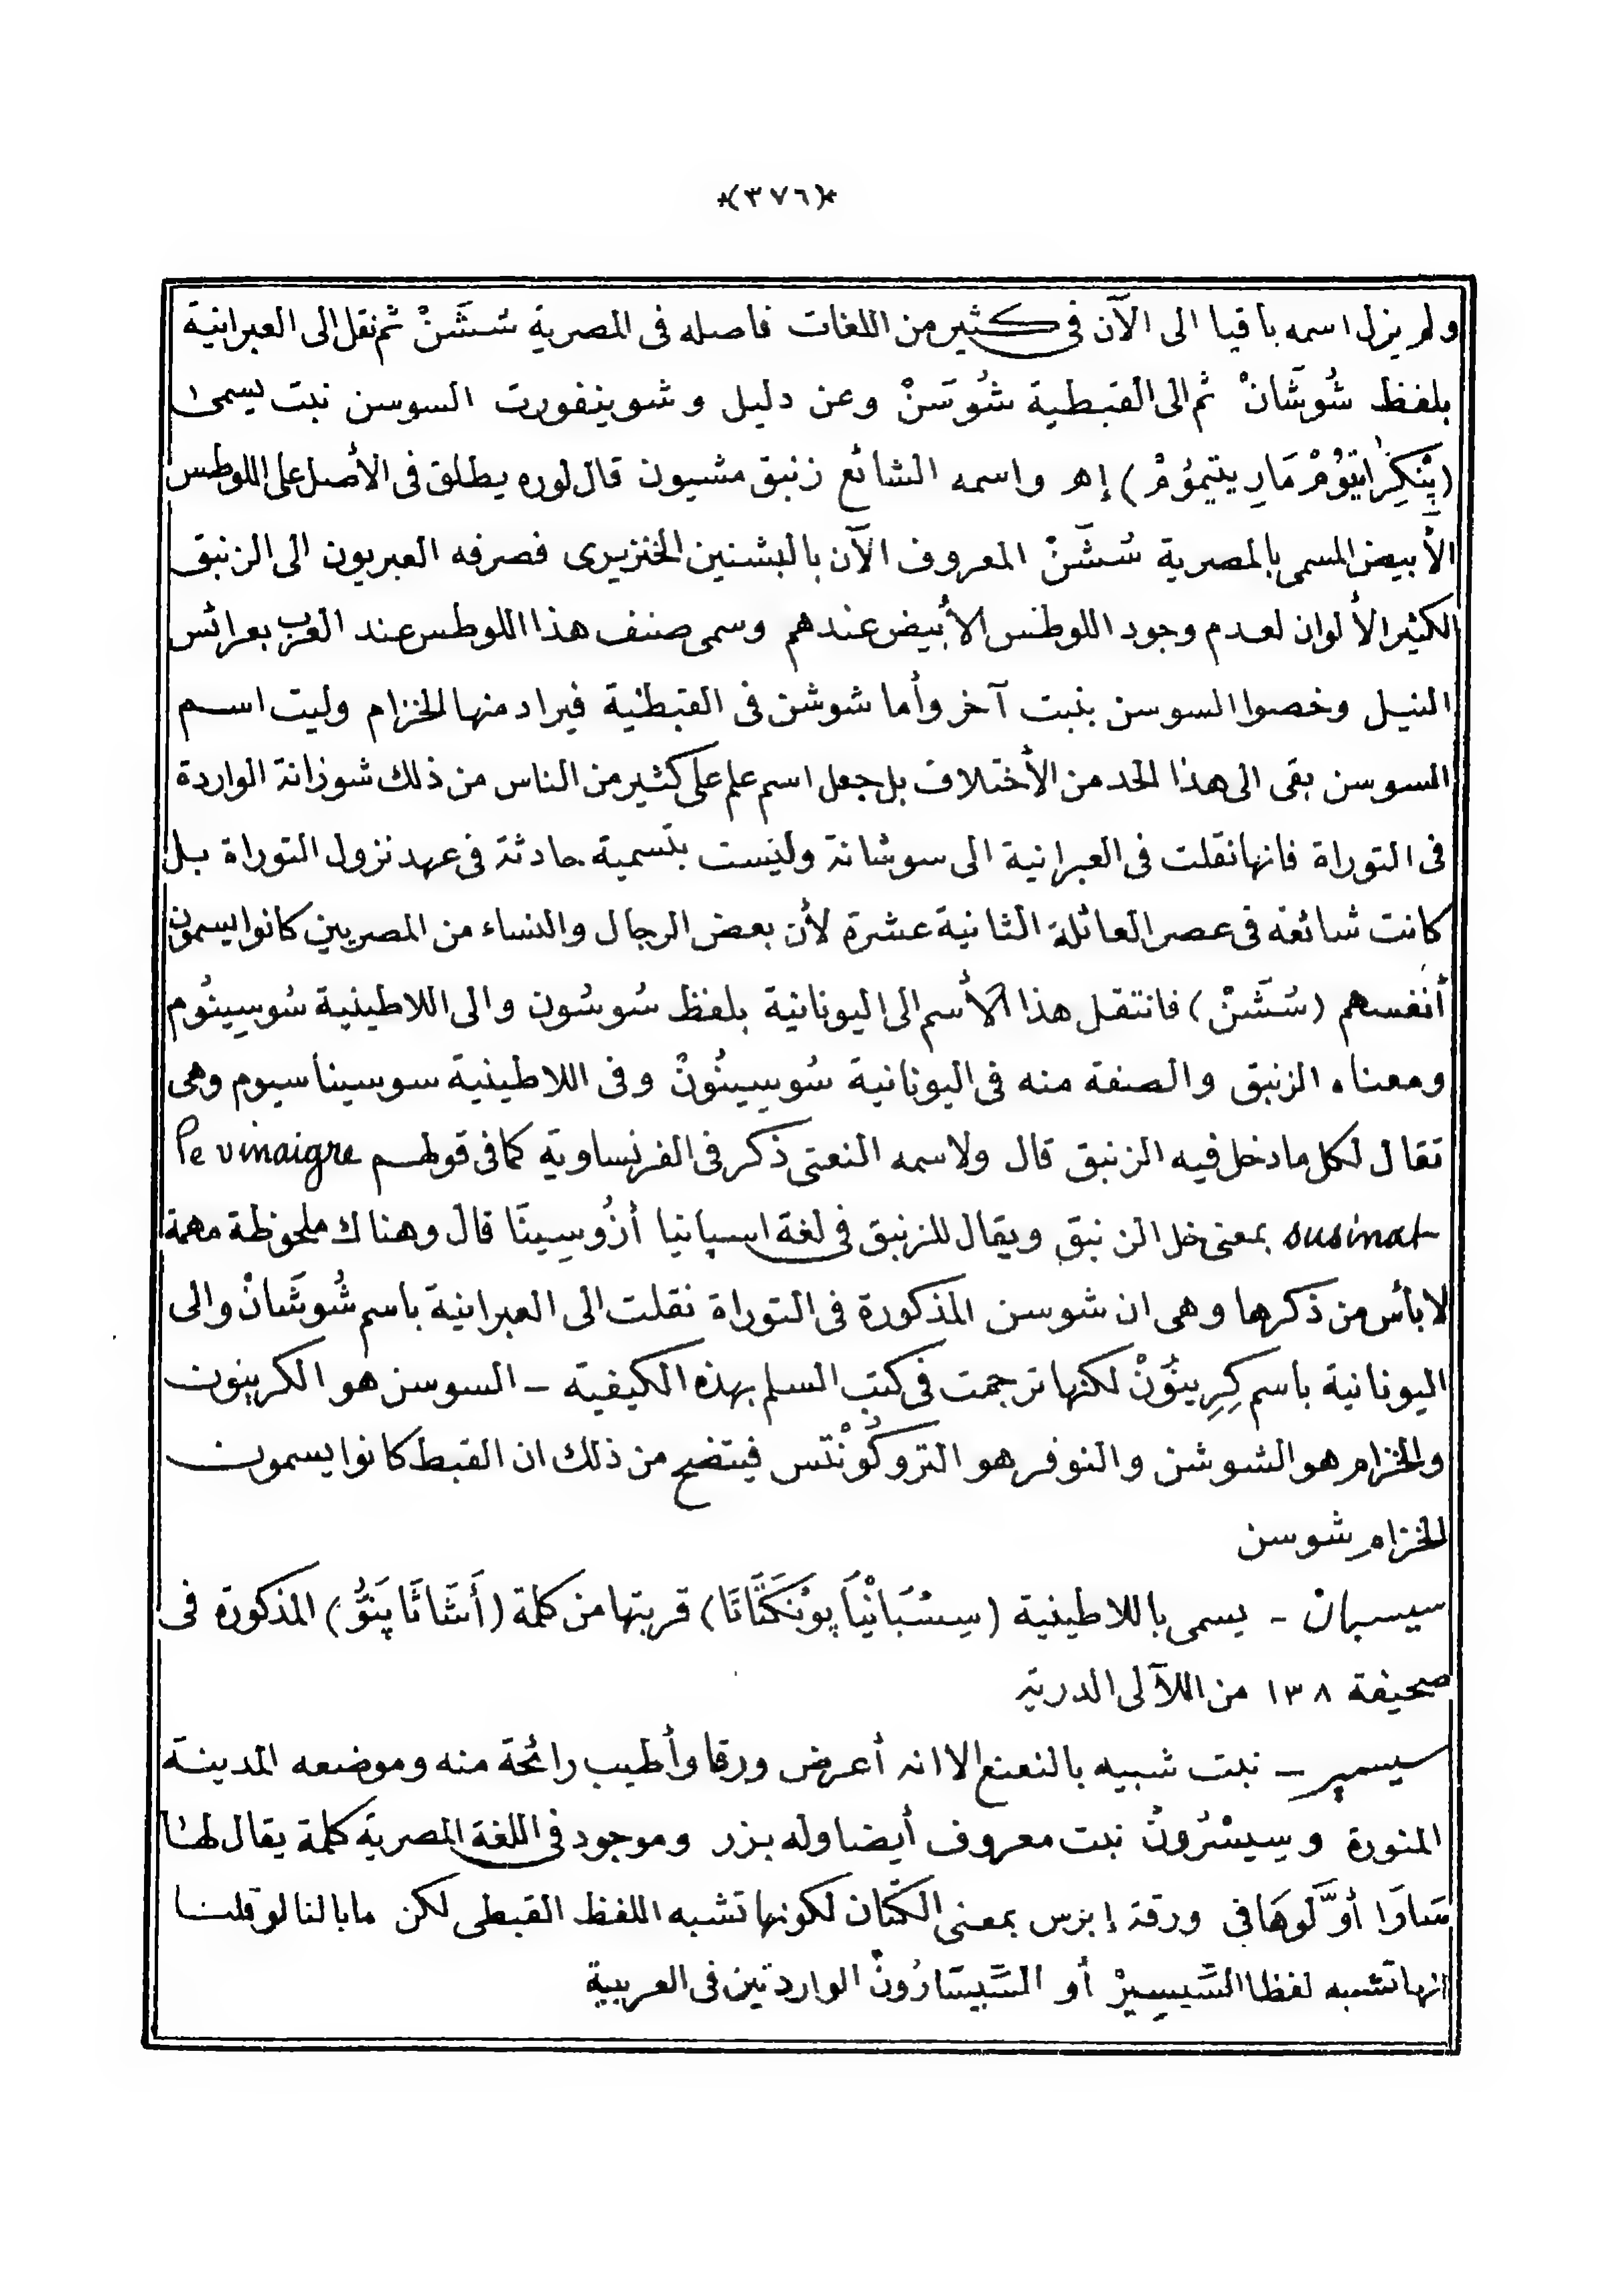 *(٣٧٦)*
ولم يزل اسمه باقيا الى الآن فى كثير من اللغات فاصله فى المصرية سُشَنْ ثم نقل الى العبرانية
بلفظ شُوشَانْ ثم الى القبطية شُوسَنْ وعن دليل وشوينفورت السوسن نبت يسمى
(پَنْكِرَاتيُومْ مَارِيتيمُومْ) إهـ واسمه الشائع زنبق مشيون قال لوره يطلق فى الأصل على اللوطس
الأبيض المسمى بالمصرية سُشَنْ المعروف الآن بالبشنين الخنزيرى فصرفه العبريون الى الزنبق
الكثير الألوان لعدم وجود اللوطس الأبيض عندهم وسمى صنف هذا اللوطس عند العرب بعرائس
النيل وخصوا السوسن بنبت آخر وأما شوشن فى القبطية فيراد منها الخزام وليت اسم
السوسن بقى الى هذا الحد من الأختلاف بل جعل اسم علم على كثير من الناس من ذلك شوزانة الواردة
فى التوراة فانها نقلت فى العبرانية الى سوشانة وليست بتسمية حادثة فى عهد نزول التوراة بل
كانت شائعة فى عصر العائلة الثانية عشرة لأن بعض الرجال والنساء من المصريين كانوا يسمون
أنفسهم (سُشَنْ) فانتقل هذا الأسم الى اليونانية بلفظ سُوسُون والى اللاطينية سُوسِينُوم
ومعناه الزنبق والصفة منه فى اليونانية سُوسِينُونْ وفى اللاطينية سوسيناسيوم وهى
تقال لكل ما دخل فيه الزنبق قال ولاسمه النعتى ذكر فى الفرنساوية كما فى قولهم le vinaigre
susinat بمعنى خل الزنبق ويقال للزنبق فى لغة اسپانيا أزُوسِينَا قال وهناك ملحوظة مهمة
لا بأس من ذكرها وهى ان شوسن المذكورة فى التوراة نقلت الى العبرانية باسم شُوشَانْ والى
اليونانية باسم كِرِينُونْ لكنها ترجمت فى كتب السلم بهذه الكيفية – السوسن هو الكرينون
والخزام هو الشوشن والنوفر هو التروكُونْتس فيتضح من ذلك ان القبط كانوا يسمون
الخزام شوسن
سيسبان – يسمى باللاطينية (سِسْبَانْيَا پونَكْتَاتَا) قربتها من كلمة (أَشَاتَا پَنُو) المذكورة فى
صحيفة ١٣٨ من اللآلى الدرية
سيسمبر – نبت شبيه بالنعنع الا انه أعرض ورقا وأطيب رائحة منه وموضعه المدينة
المنورة وسِيسْرُونْ نبت معروف أيضا وله بزر وموجود فى اللغة المصرية كلمة يقال لها
سَاوَا أوَّلوهَا فى ورقة إبرس بمعنى الكتان لكونها تشبه اللفظ القبطى لكن ما بالنا لو قلنا
انها تشبه لفظا السَّيسِيرْ أو السَّيسَارُونْ الواردتين فى العربية